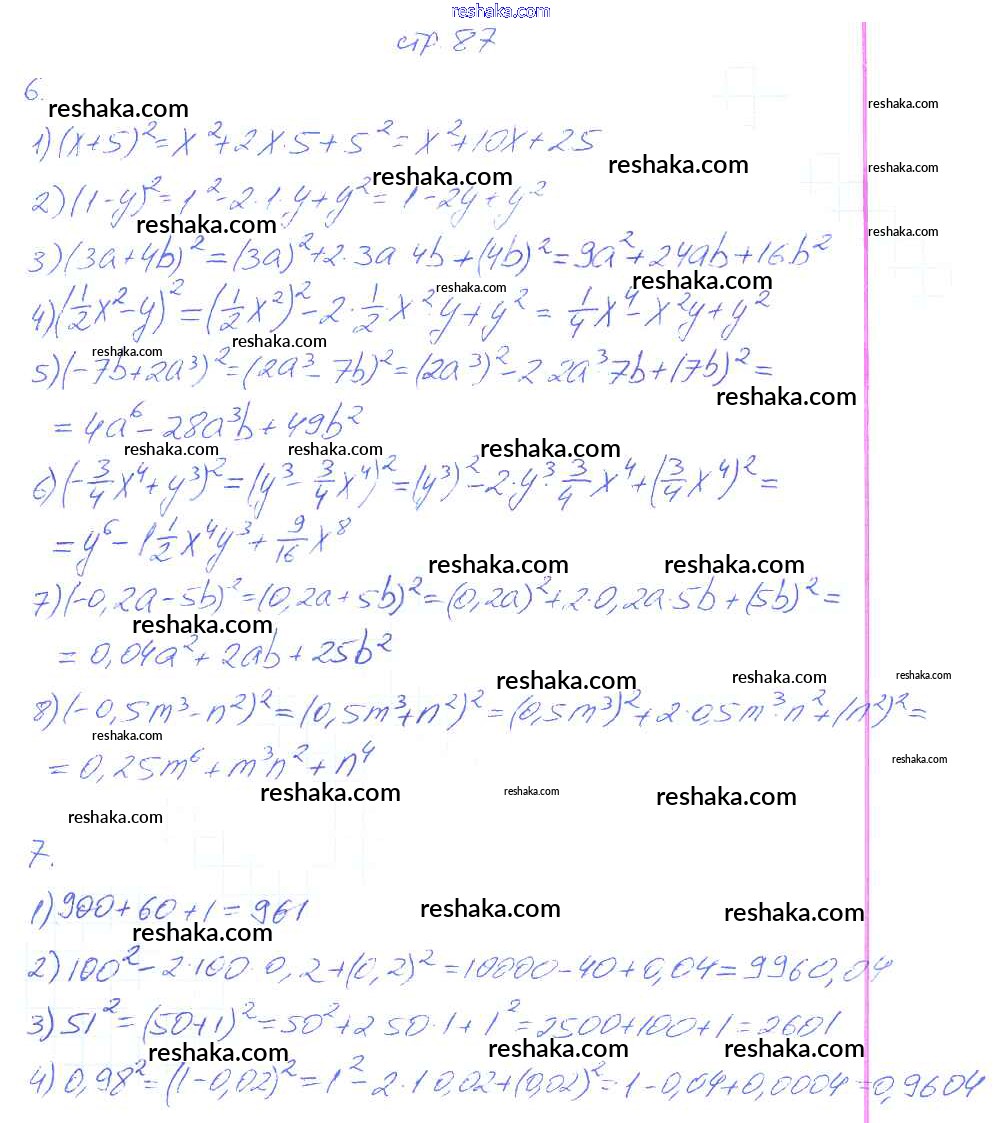 reshaka.com
стр. 87
6.
reshaka.com
reshaka.com
1) (x+5)² = x² + 2x·5 + 5² = x² + 10x + 25
reshaka.com
reshaka.com
reshaka.com
2) (1-y)² = 1² - 2·1·y + y² = 1 - 2y + y²
reshaka.com
reshaka.com
3) (3a+4b)² = (3a)² + 2·3a 4b + (4b)² = 9a² + 24ab + 16b²
reshaka.com
reshaka.com
4) (1/2x² - y)² = (1/2x²)² - 2·1/2·x²·y + y² = 1/4x⁴ - x²y + y²
reshaka.com
reshaka.com
5) (-7b+2a³)² = (2a³ - 7b)² = (2a³)² - 2 2a³7b + (7b)² =
reshaka.com
= 4a⁶ - 28a³b + 49b²
reshaka.com
reshaka.com
reshaka.com
6) (-3/4x⁴ + y³)² = (y³ - 3/4x⁴)² = (y³)² - 2·y³·3/4x⁴ + (3/4x⁴)² =
= y⁶ - 1 1/2x⁴y³ + 9/16x⁸
reshaka.com
reshaka.com
7) (-0,2a - 5b)² = (0,2a + 5b)² = (0,2a)² + 2·0,2a·5b + (5b)² =
reshaka.com
= 0,04a² + 2ab + 25b²
reshaka.com
reshaka.com
reshaka.com
8) (-0,5m³ - n²)² = (0,5m³ + n²)² = (0,5m³)² + 2·0,5m³·n² + (n²)² =
reshaka.com
= 0,25m⁶ + m³n² + n⁴
reshaka.com
reshaka.com
reshaka.com
reshaka.com
reshaka.com
7.
1) 900 + 60 + 1 = 961
reshaka.com
reshaka.com
reshaka.com
2) 100² - 2·100·0,2 + (0,2)² = 10000 - 40 + 0,04 = 9960,04
3) 51² = (50+1)² = 50² + 2 50·1 + 1² = 2500 + 100 + 1 = 2601
reshaka.com
reshaka.com
reshaka.com
4) 0,98² = (1 - 0,02)² = 1² - 2·1 0,02 + (0,02)² = 1 - 0,04 + 0,0004 = 0,9604